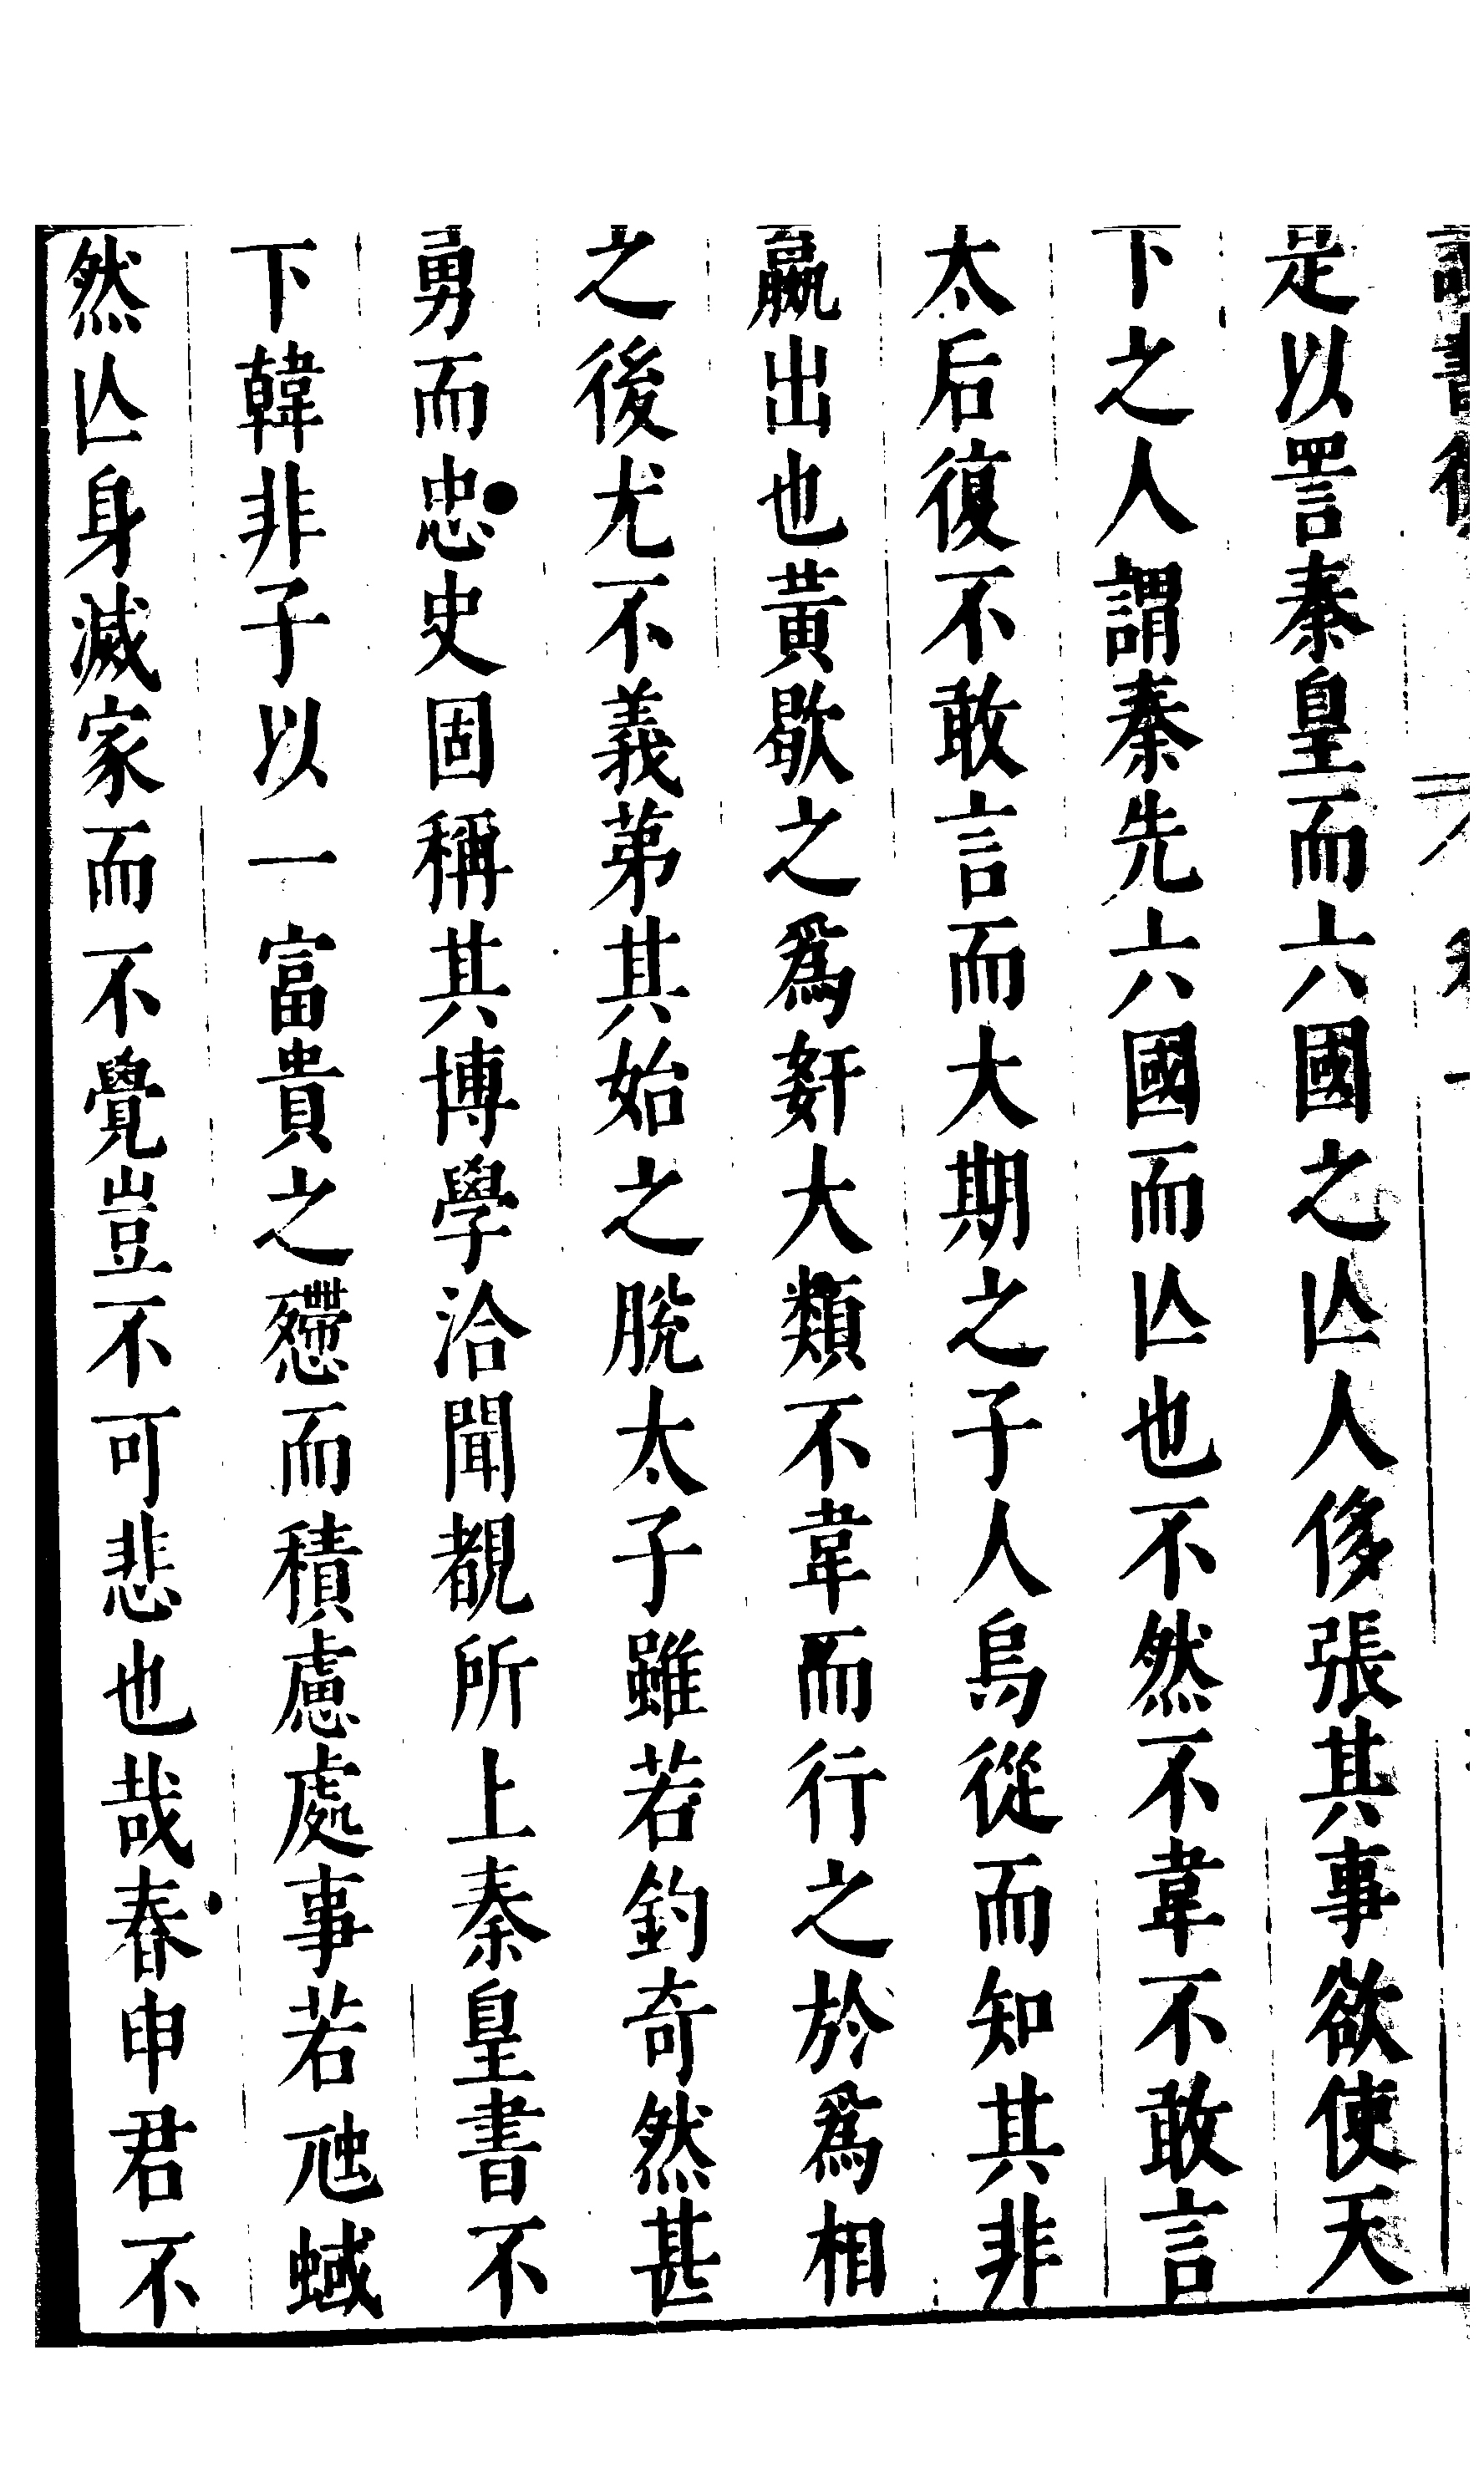 讀書後
是以詈秦皇而六國之亾人侈張其事欲使天
下之人謂秦先六國而亾也不然不韋不敢言
太后復不敢言而大期之子人烏從而知其非
嬴出也黃歇之爲姧大類不韋而行之於爲相
之後尤不義苐其始之脫太子雖若釣奇然甚
勇而忠史固稱其博學洽聞覩所上秦皇書不
下韓非子以一富貴之殢而積慮處事若虺蜮
然亾身滅家而不覺豈不可悲也哉春申君不